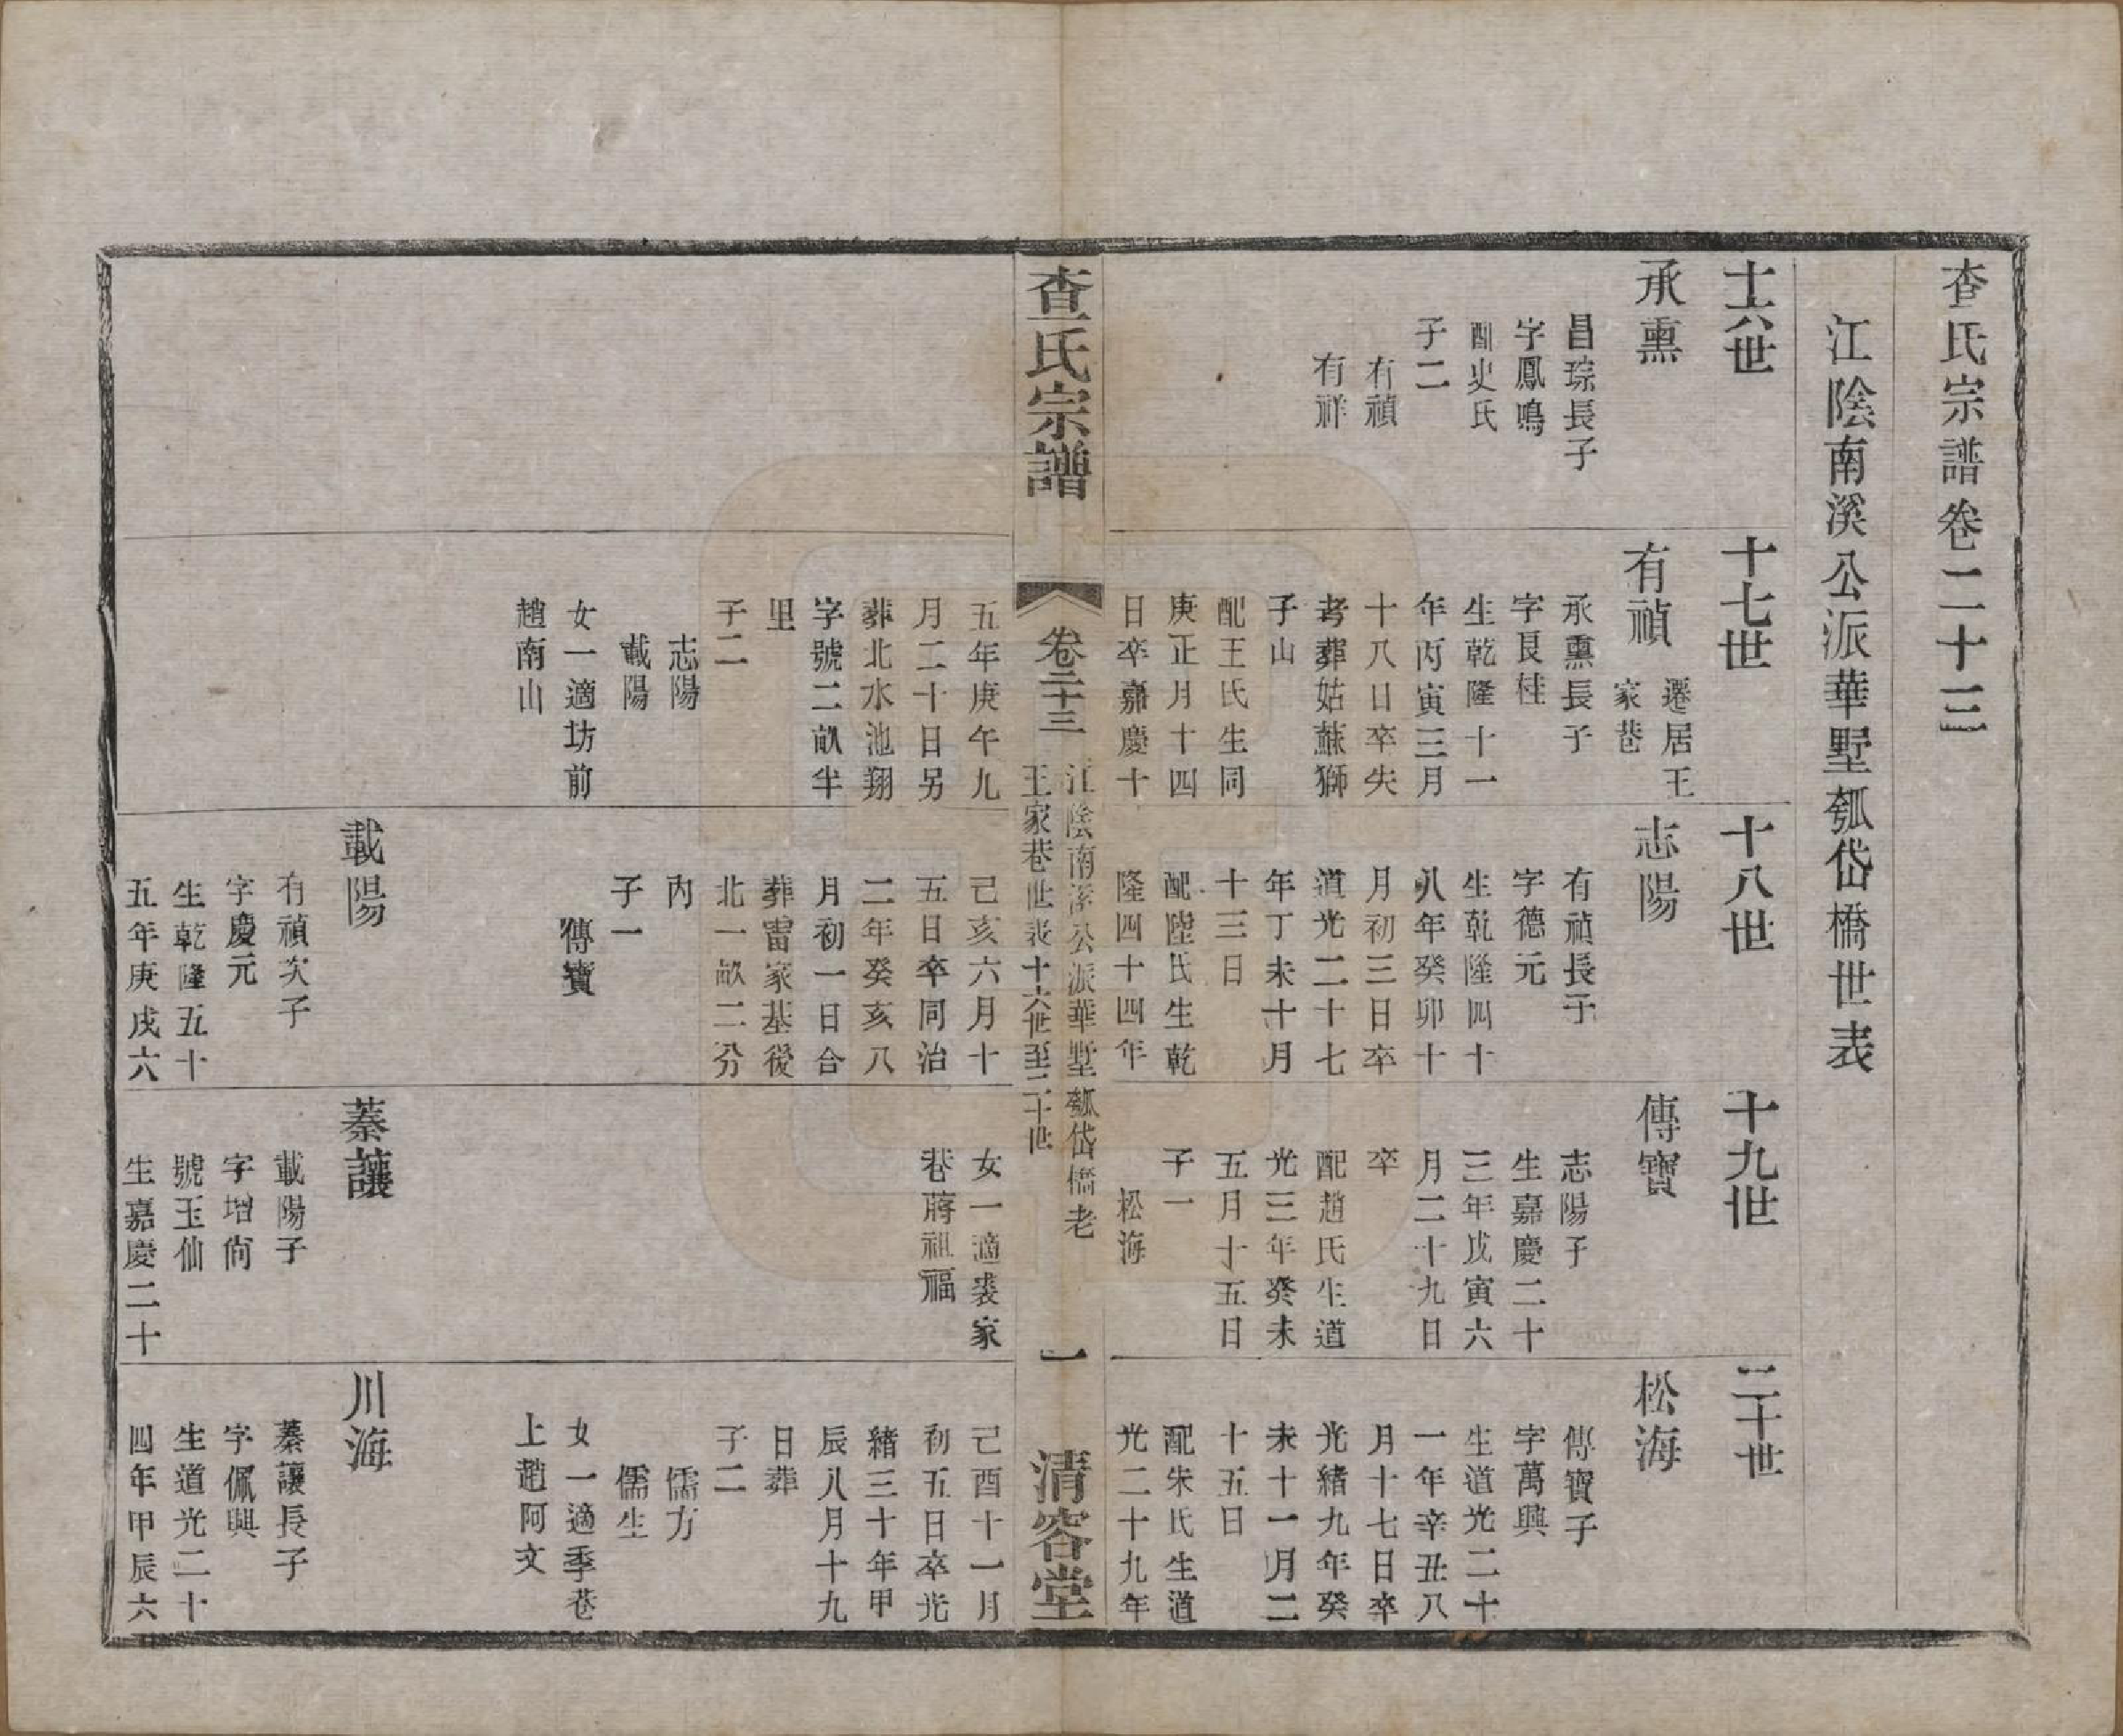 查氏宗譜卷二十三
江陰南溪公派華墅瓠岱橋世表
十六世
承熏
昌琮長子
字鳳鳴
配史氏
子二
有禎
有祥
十七世
有禎
遷居王
家巷
承熏長子
字艮桂
生乾隆十一
年丙寅三月
十八日卒失
考葬姑蘇獅
子山
配王氏生同
庚正月十四
日卒嘉慶十
五年庚午九
月二十日另
葬北水池翔
字號二畝半
里
子二
志陽
載陽
女一適坊前
趙南山
十八世
志陽
有禎長子
字德元
生乾隆四十
八年癸卯十
月初三日卒
道光二十七
年丁未十月
十三日
配陸氏生乾
隆四十四年
己亥六月十
五日卒同治
二年癸亥八
月初一日合
葬雷家基後
北一畝二分
內
子一
傳寶
載陽
有禎次子
字慶元
生乾隆五十
五年庚戌六
十九世
傳寶
志陽子
生嘉慶二十
三年戊寅六
月二十九日
卒
配趙氏生道
光三年癸未
五月十五日
子一
松海
女一適裘家
巷蔣祖福
蓁讓
載陽子
字增尙
號玉仙
生嘉慶二十
二十世
松海
傳寶子
字萬興
生道光二十
一年辛丑八
月十七日卒
光緒九年癸
未十一月二
十五日
配朱氏生道
光二十九年
己酉十一月
初五日卒光
緒三十年甲
辰八月十九
日葬
子二
儒方
儒生
女一適季巷
上趙阿文
川海
蓁讓長子
字佩興
生道光二十
四年甲辰六
查氏宗譜
卷二十三
江陰南溪公派華墅瓠岱橋老
王家巷世表十六世至二十世
一
清容堂